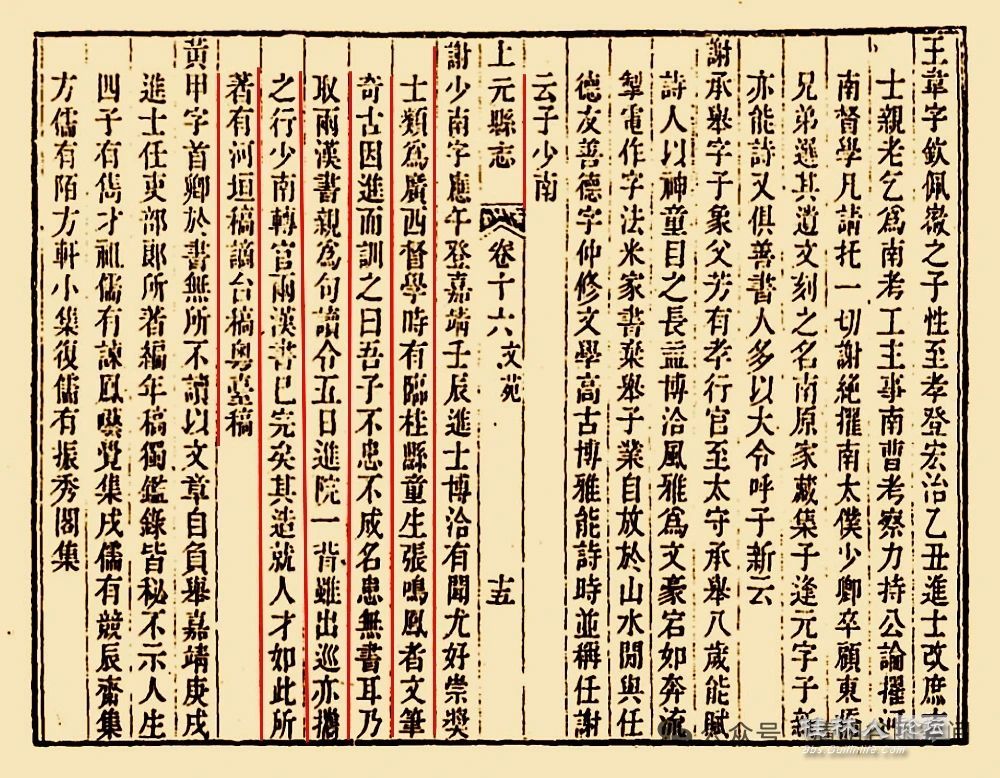 王韋字欽佩徽之子性至孝登宏治乙丑進士改庶
士親老乞爲南考工主事南曹考察力持公論擢河
南督學凡請托一切謝絕擢南太僕少卿卒顧東橋
兄弟選其遺文刻之名南原家藏集子逢元字子新
亦能詩又俱善書人多以大令呼子新云
謝承舉字子象父芳有孝行官至太守承舉八歲能賦
詩人以神童目之長益博洽風雅爲文豪宕如奔流
掣電作字法米家書棄舉子業自放於山水間與任
德友善德字仲修文學高古博雅能詩時並稱任謝
云子少南
上元縣志 卷十六文苑 十五
謝少南字應午登嘉靖壬辰進士博洽有聞尤好崇獎
士類爲廣西督學時有臨桂縣童生張鳴鳳者文筆
奇古因進而訓之曰吾子不患不成名患無書耳乃
取兩漢書親爲句讀令五日進院一背雖出巡亦攜
之行少南轉官兩漢書已完矣其造就人才如此所
著有河垣稿謫台稿粤臺稿
黃甲字首卿於書無所不讀以文章自負舉嘉靖庚戌
進士任吏部郎所著編年稿獨鑑錄皆秘不示人生
四子有儁才祖儒有諫鳳嚶覺集戌儒有競辰齋集
方儒有陌方軒小集復儒有振秀閣集
公众号
桂林人论坛
bbs.Guilinlife.com